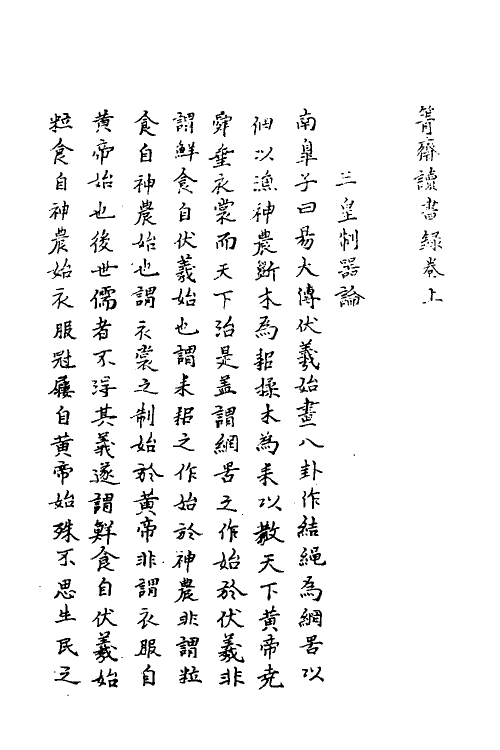 箐齋讀書錄卷上
三皇制器論
南臯子曰易大傳伏羲始畫八卦作結繩為網罟以
佃以漁神農斲木為耜揉木為耒以教天下黃帝堯
舜垂衣裳而天下治是盖謂網罟之作始於伏羲非
謂鮮食自伏羲始也謂耒耜之作始於神農非謂粒
食自神農始也謂衣裳之制始於黃帝非謂衣服自
黃帝始也後世儒者不淂其義遂謂鮮食自伏羲始
粒食自神農始衣服冠屨自黃帝始殊不思生民之